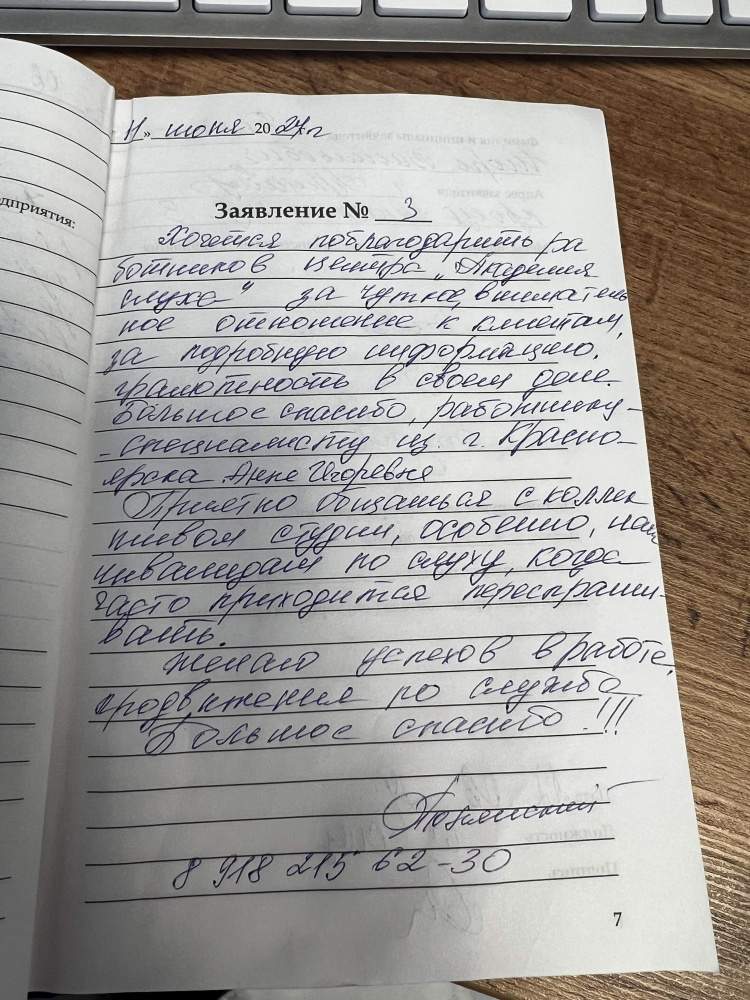 11» июня 2024 г
Заявление № 3
Хочется поблагодарить ра
ботников центра „Академия
слуха" за чуткое, вниматель
ное отношение к клиентам,
за подробную информацию,
грамотность в своем деле.
Большое спасибо, работнику-
-специалисту из г. Красно-
ярска Анне Игоревне
Приятно общаться с коллек
тивом студии, особенно, нам
инвалидам по слуху, когда
часто приходится переспраши-
вать.
Желаю успехов в работе,
продвижения по службе
Большое спасибо!!!
8 918 215 62-30
7
дприятия: